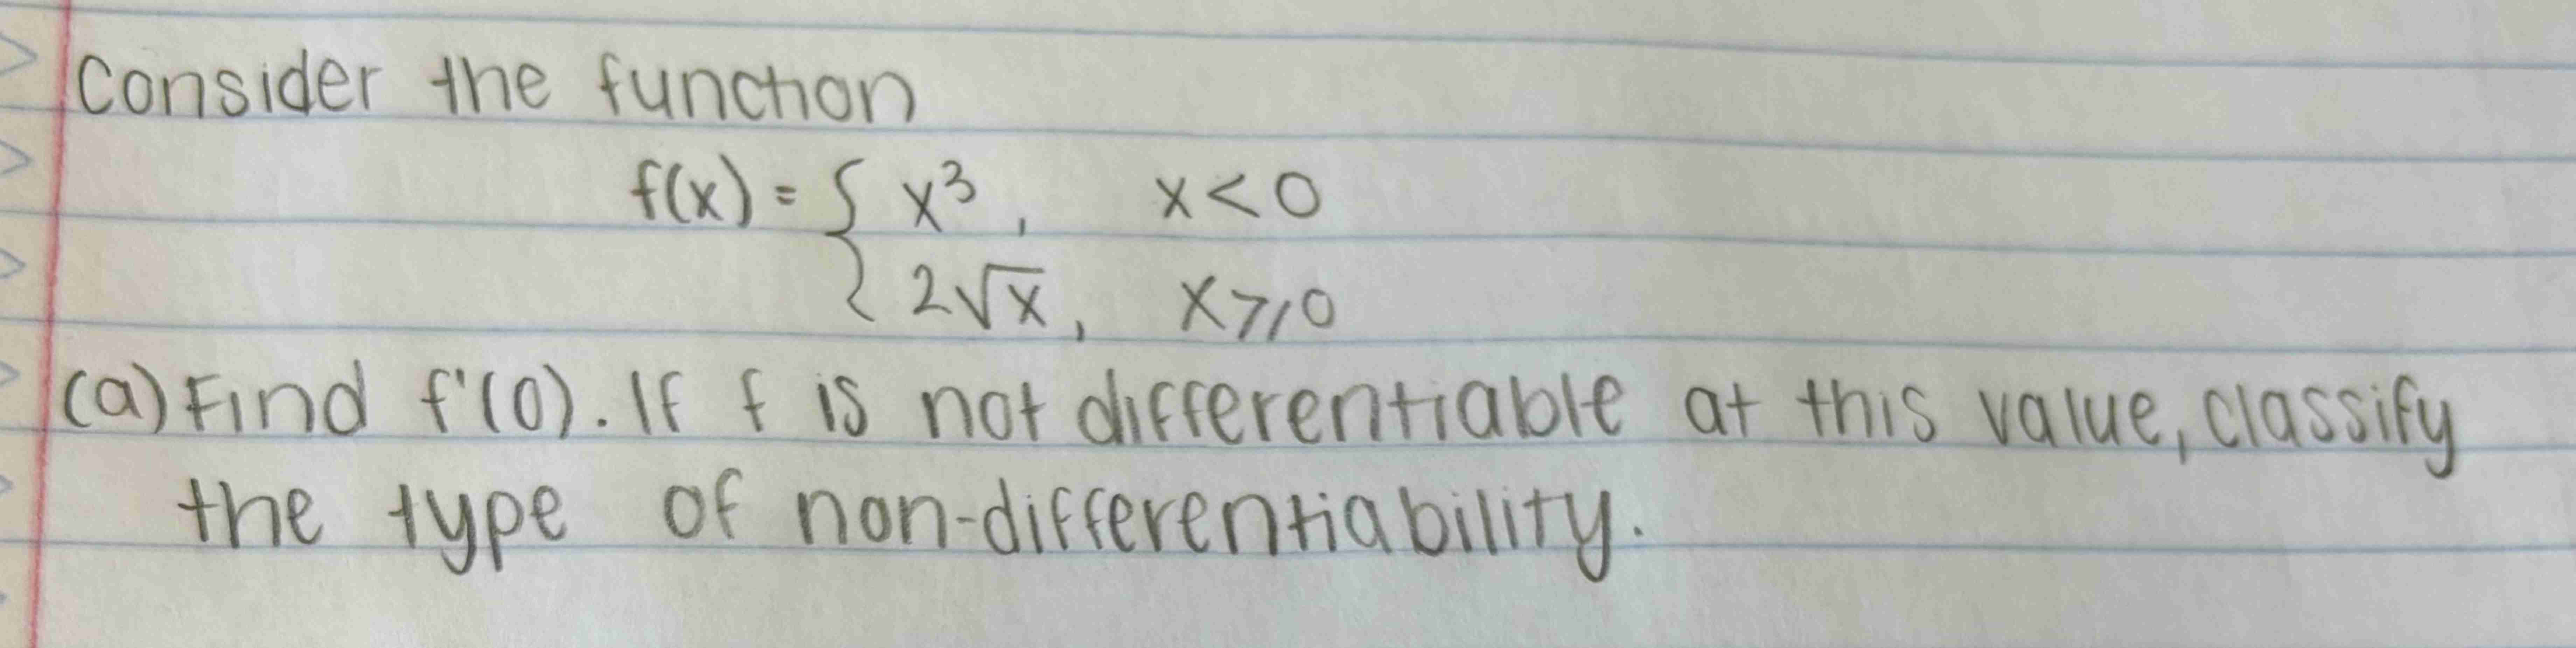 Consider the function
f(x) = { x³, x < 0
2√x, x ⩾ 0
(a) Find f'(0). If f is not differentiable at this value, classify
the type of non-differentiability.